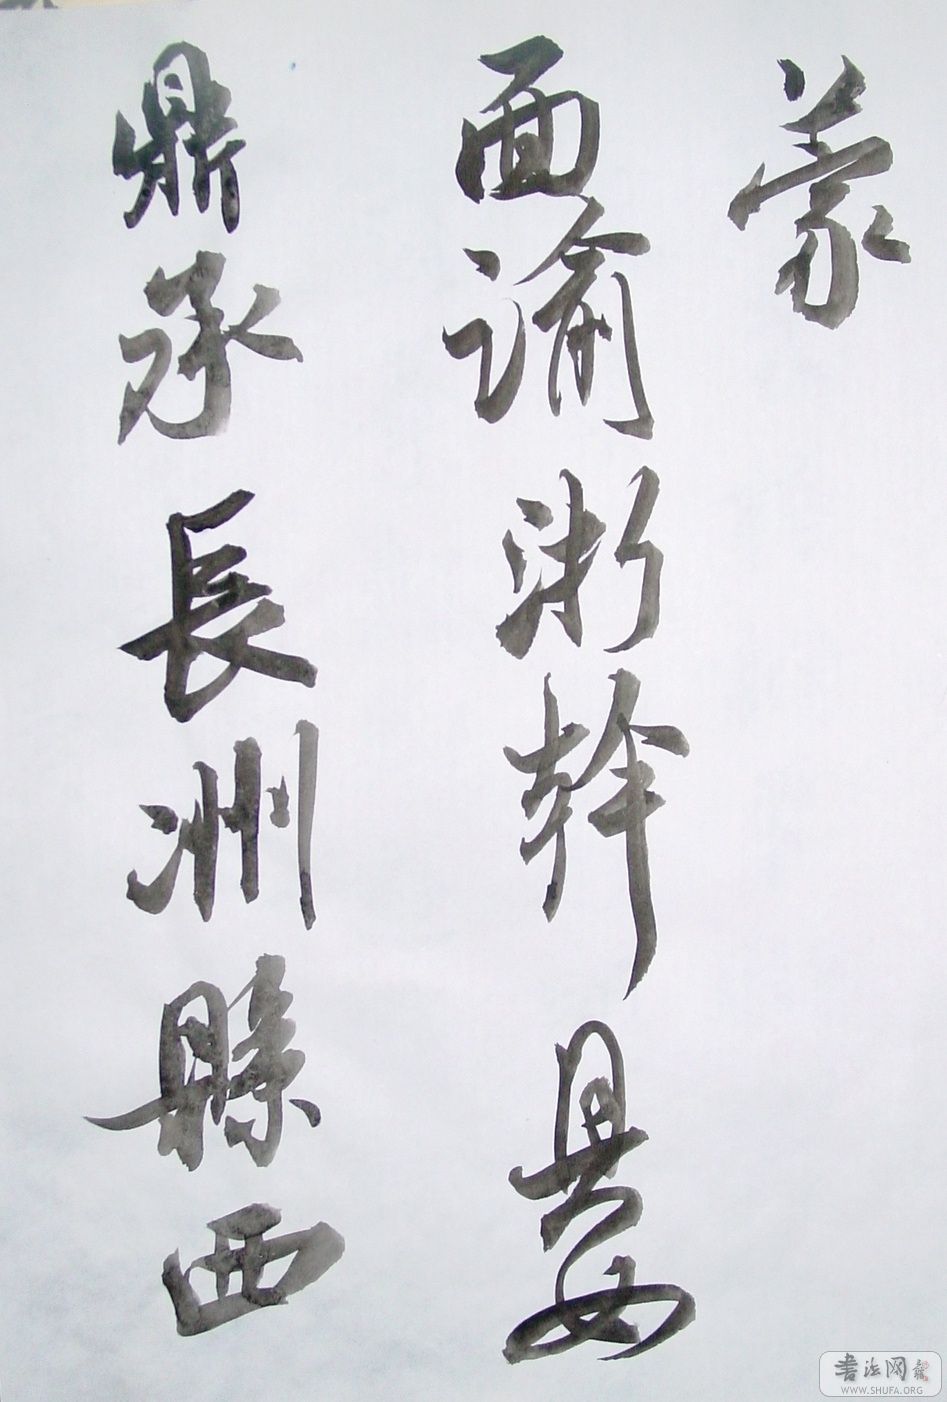 蒙
面諭浙幹具要
鼎承長洲縣西
書法网
WWW.SHUFA.ORG